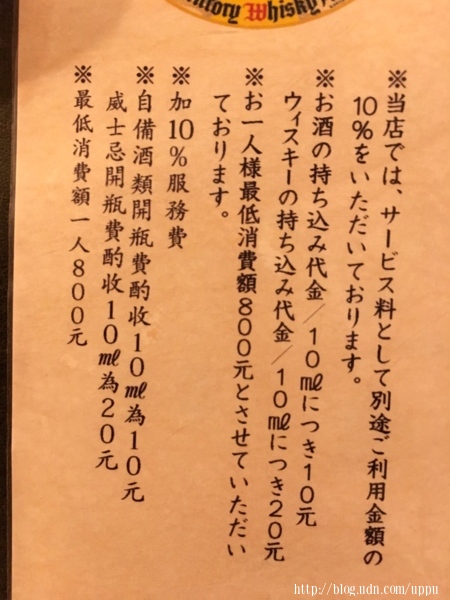 ntory Whisky
※当店では、サービス料として別途ご利用金額の
10%をいただいております。
※お酒の持ち込み代金／10㎖につき10元
ウィスキーの持ち込み代金／10㎖につき20元
※お一人様最低消費額800元とさせていただい
ております。
※加10%服務費
※自備酒類開瓶費酌收10㎖為10元
威士忌開瓶費酌收10㎖為20元
※最低消費額一人800元
http://blog.udn.com/uppu